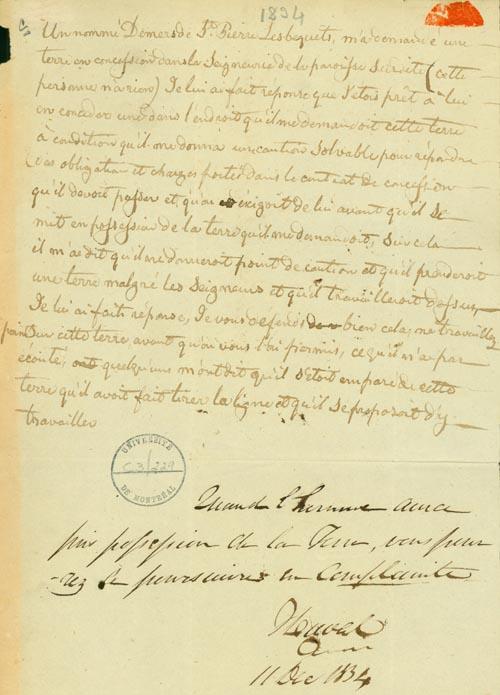 1834
Un nommé Demers de St. Pierre Lesbequets, m'a demandé une
terre en concession dans la Seigneurie de la paroisse susdite (cette
personne n'a rien) Je lui ai fait reponse que J'etois prêt à lui
en conceder une dans l'endroit qu'il me demandoit cette terre
à condition qu'il me donna une caution Solvable pour répondre
des obligation et charges portés dans le contrat de concession
qu'il devoit passer et qu'on éxigeoit de lui avant qu'il se
mit en possession de la terre qu'il me demandoit, Sur cela
il m'a dit qu'il ne donneroit point de caution et qu'il prenderoit
une terre malgré les Seigneurs et qu'il travailleroit dessus
Je lui ai fait réponse, Je vous defends bien cela, ne travaillez
point sur cette terre, avant qu'on vous l'ai permis, ce qu'il n'a pas
ecouté, quelqu'uns m'ont dit qu'il s'étoit emparé de cette
terre qu'il avoit fait tirer la ligne et qu'il se proposoit d'y
travailler
UNIVERSITÉ
C3/229
DE MONTRÉAL
Quand l'homme aura
pris possession de la Terre, vous pour
-rez le poursuivre en Complainte
11 Dec 1834